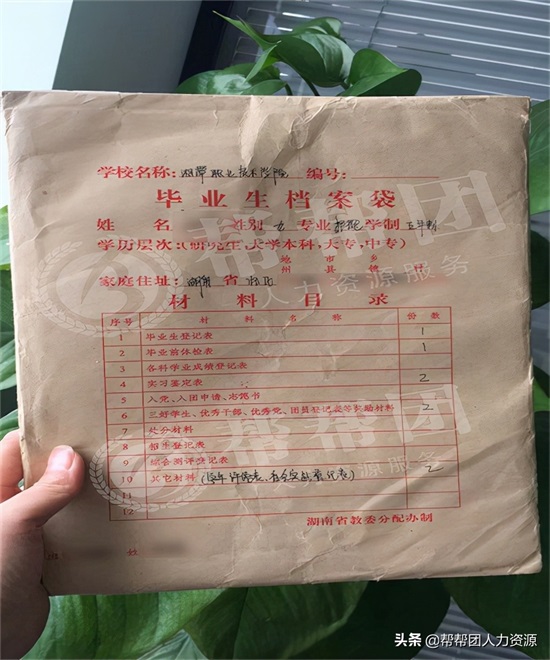 学校名称: 湘潭职业技术学院 编号:
毕业生档案袋
姓名 性别 女 专业 护理 学制 五年制
学历层次:(研究生、大学本科,大专,中专)
地 市 乡
家庭住址: 湖南 省 州 县 镇 村
材料目录
序号 材料名称 份数
1 毕业生登记表 1
2 毕业前体检表 1
3 各科学业成绩登记表
4 实习鉴定表 2
5 入党、入团申请、志愿书
6 三好学生、优秀干部、优秀党、团员登记表等奖励材料 2
7 处分材料
8 招生登记表
9 综合测评登记表
10 其它材料(学年评语表、社会实践登记表) 2
11
12
湖南省教委分配办制
帮帮团
人力资源服务
帮帮团
人力资源服务
头条 @帮帮团人力资源